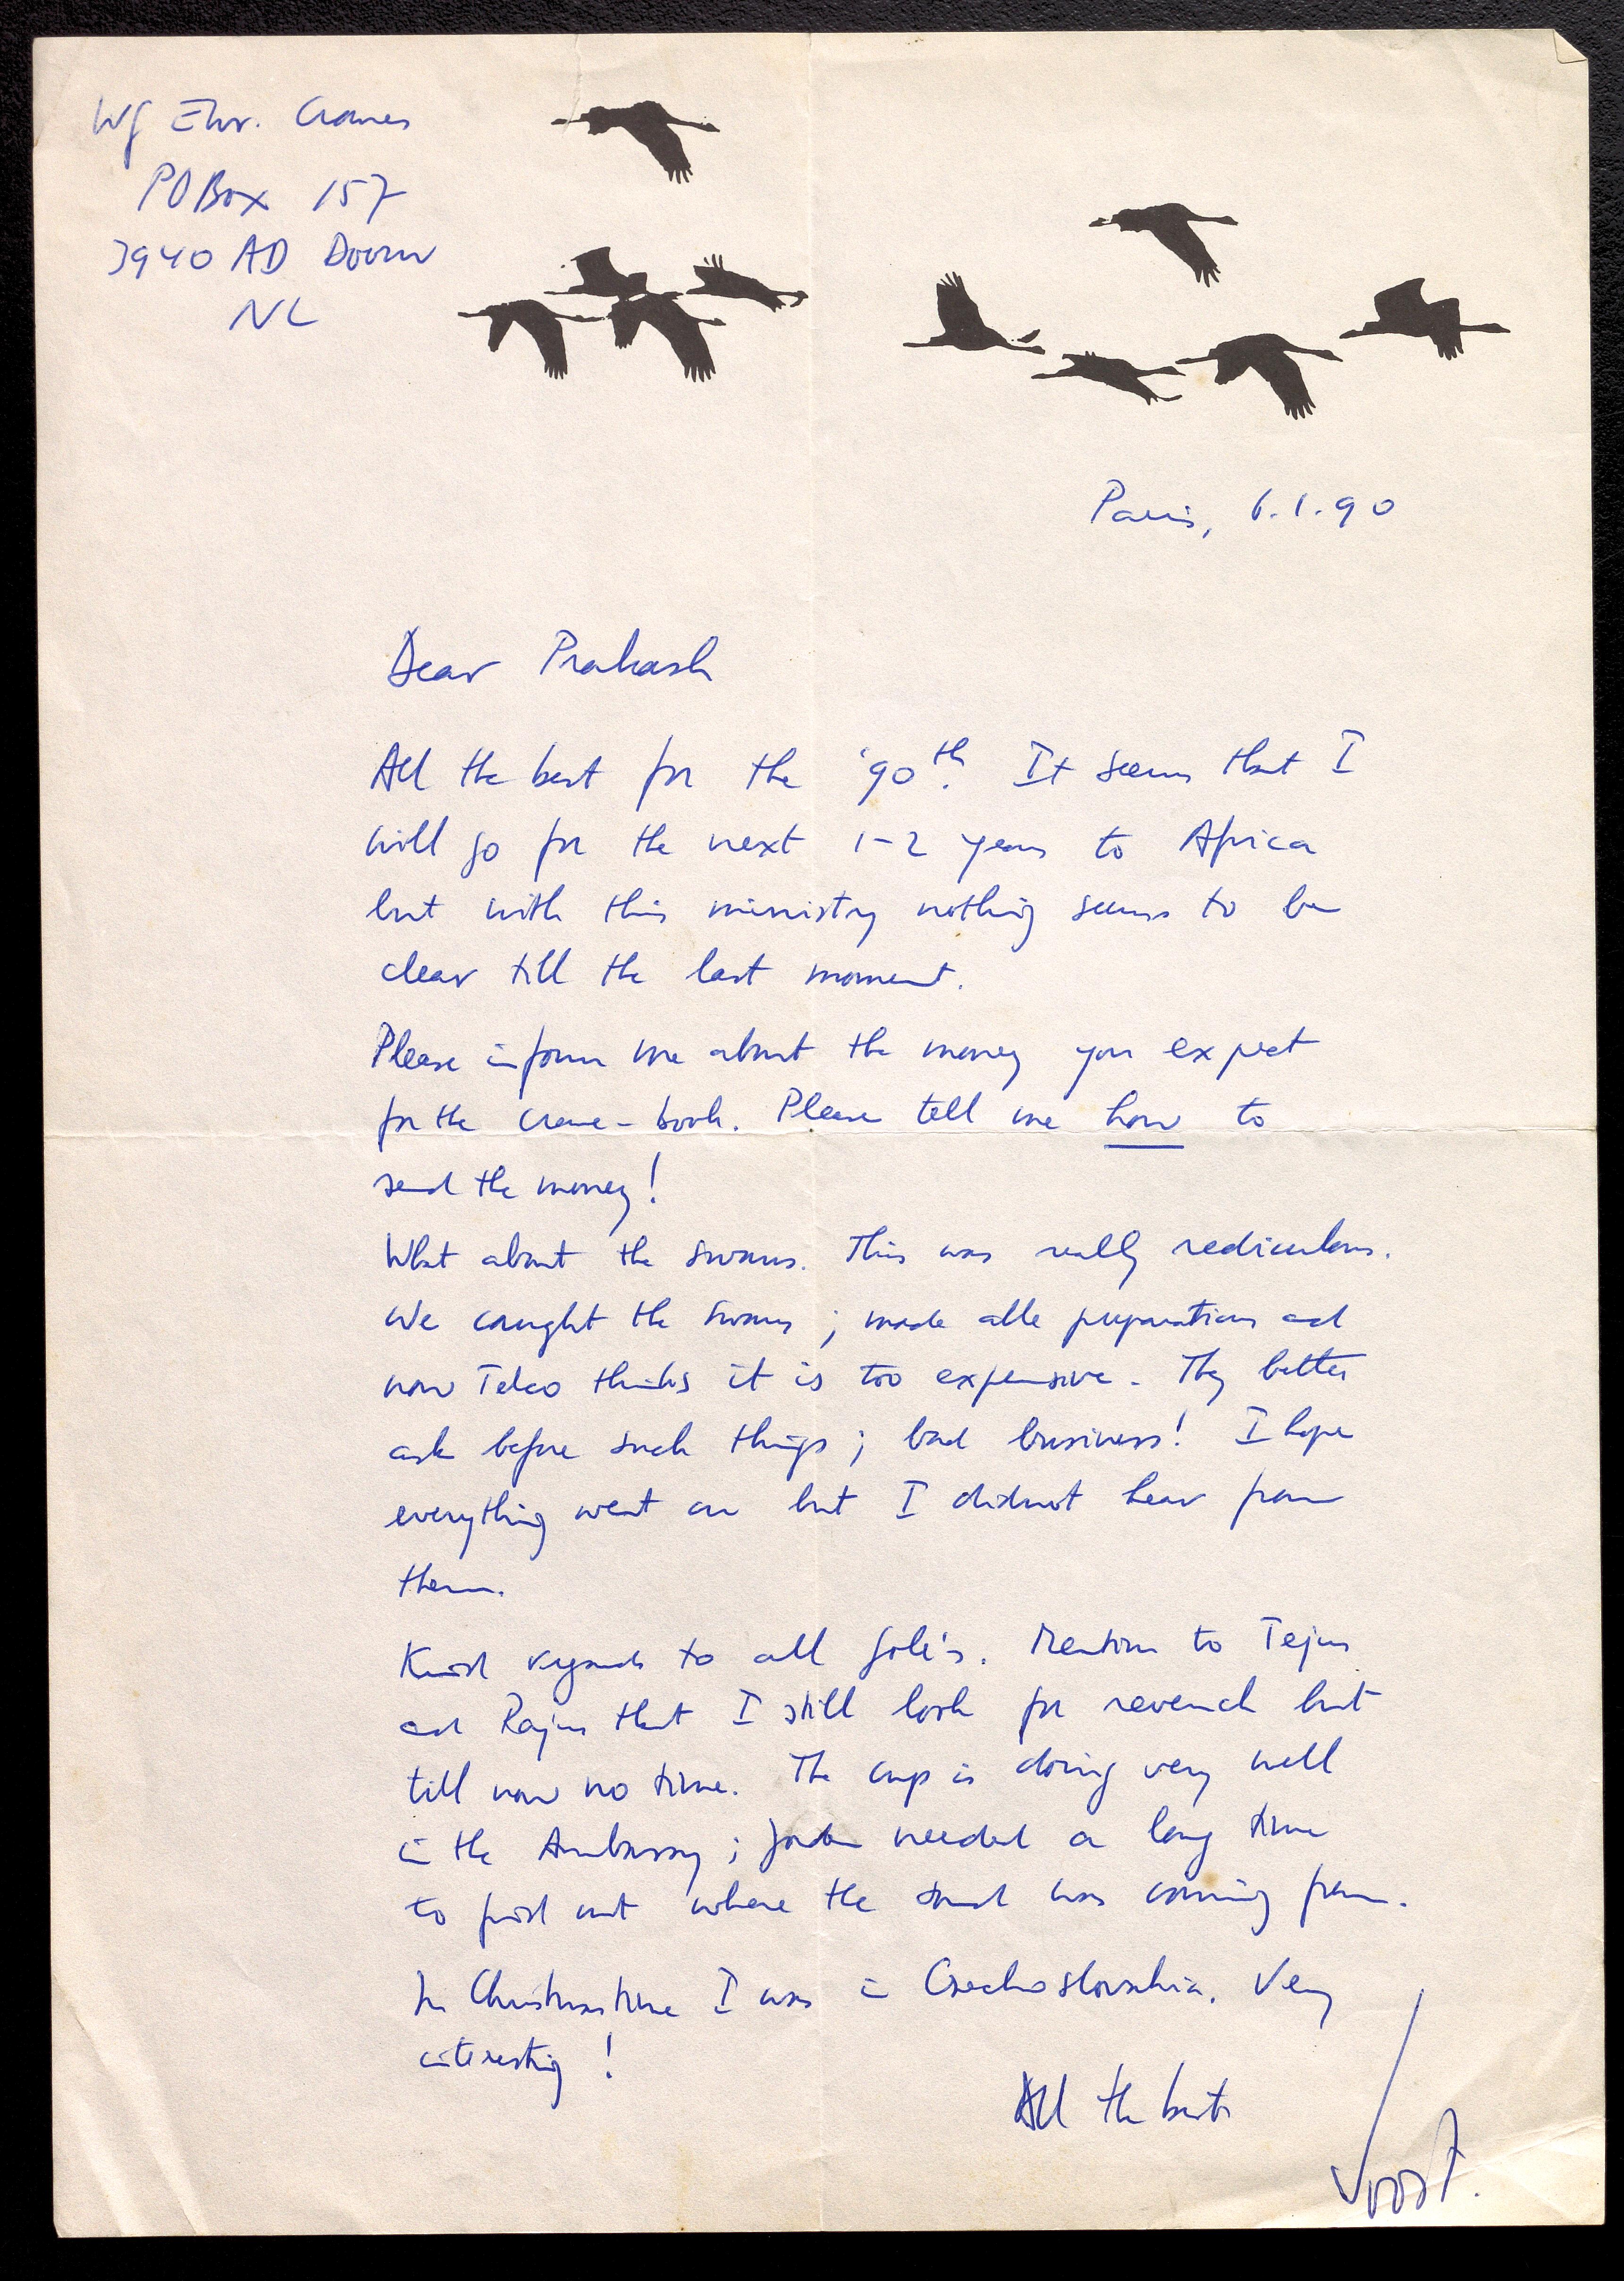 WG Eur. Cranes
PO Box 157
3940 AD Doorn
NL
Paris, 6.1.90
Dear Prakash
All the best for the '90th. It seems that I
will go for the next 1-2 years to Africa
but with this ministry nothing seems to be
clear till the last moment.
Please inform me about the money you expect
for the crane-book. Please tell me how to
send the money!
What about the swans. This was really rediculous.
We caught the swans; made alle preparations and
now Telco thinks it is too expensive. They better
ask before such things; bad business! I hope
everything went on but I didnot hear from
them.
Kind regards to all Gole's. Mention to Tejus
and Rajus that I still look for revench but
till now no time. The cup is doing very well
in the Ambassy; needed a long time
to find out where the sound was coming from.
In Christmastime I was in Czechoslovakia. Very
interesting!
All the best
Joost.